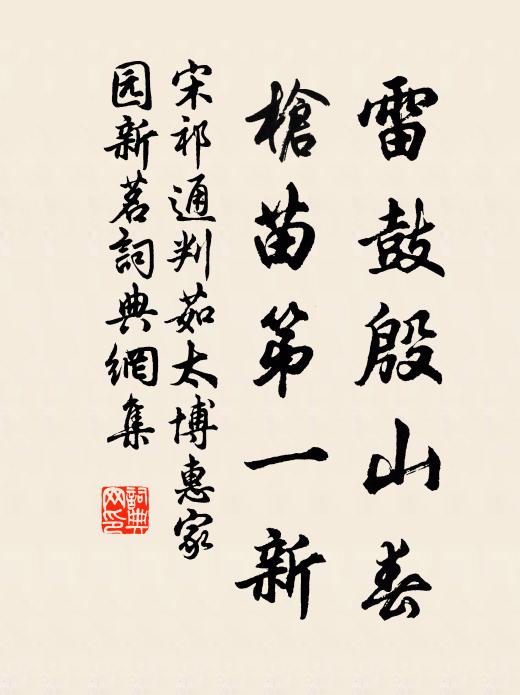 雷鼓殷山春
槍苗第一新
宋祁通判茹太博惠家
园新茗詞典網集
詞典
网印